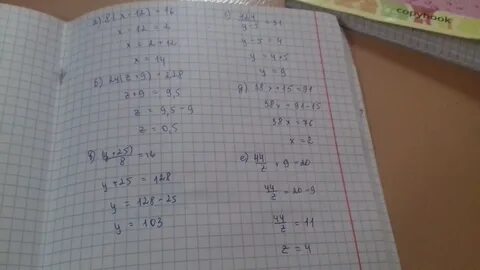 а) 8(x-12)=16
x-12=2
x=2+12
x=14
б) 24(z+9)=228
z+9=9,5
z=9,5-9
z=0,5
в) (y+25)/8=16
y+25=128
y=128-25
y=103
г) 124/(y-5)=31
y-5=4
y=4+5
y=9
д) 38x+15=91
38x=91-15
38x=76
x=2
е) 44/z+9=20
44/z=20-9
44/z=11
z=4
copybook